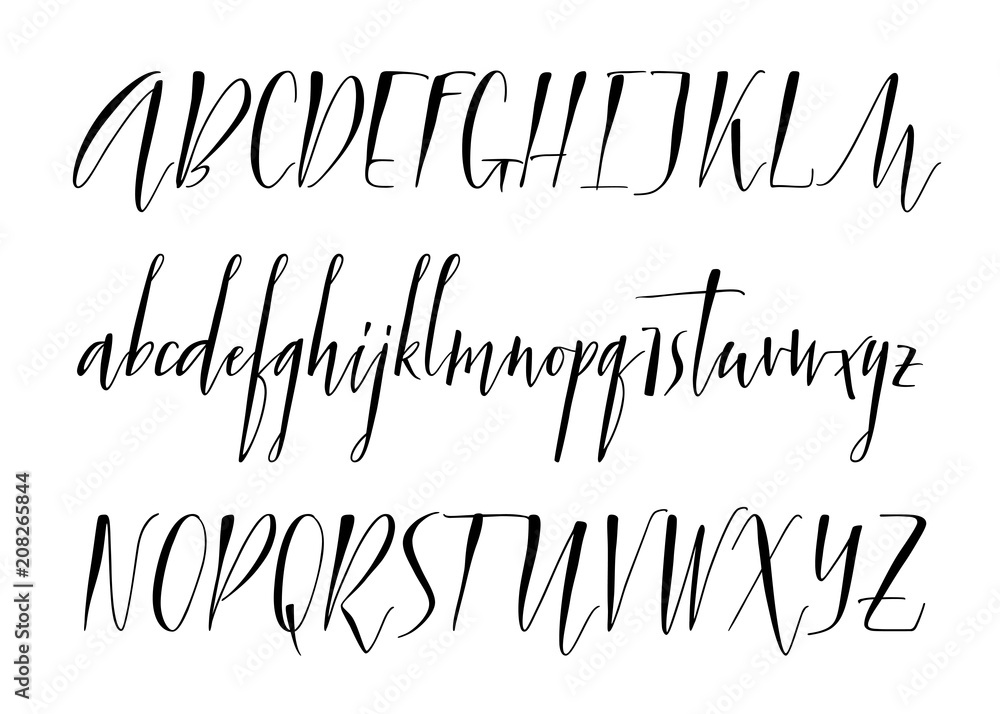 ABCDEFGHIJKLM
abcdefghijklmnopqrstuvwxyz
NOPQRSTUVWXYZ
Adobe Stock | #208265844